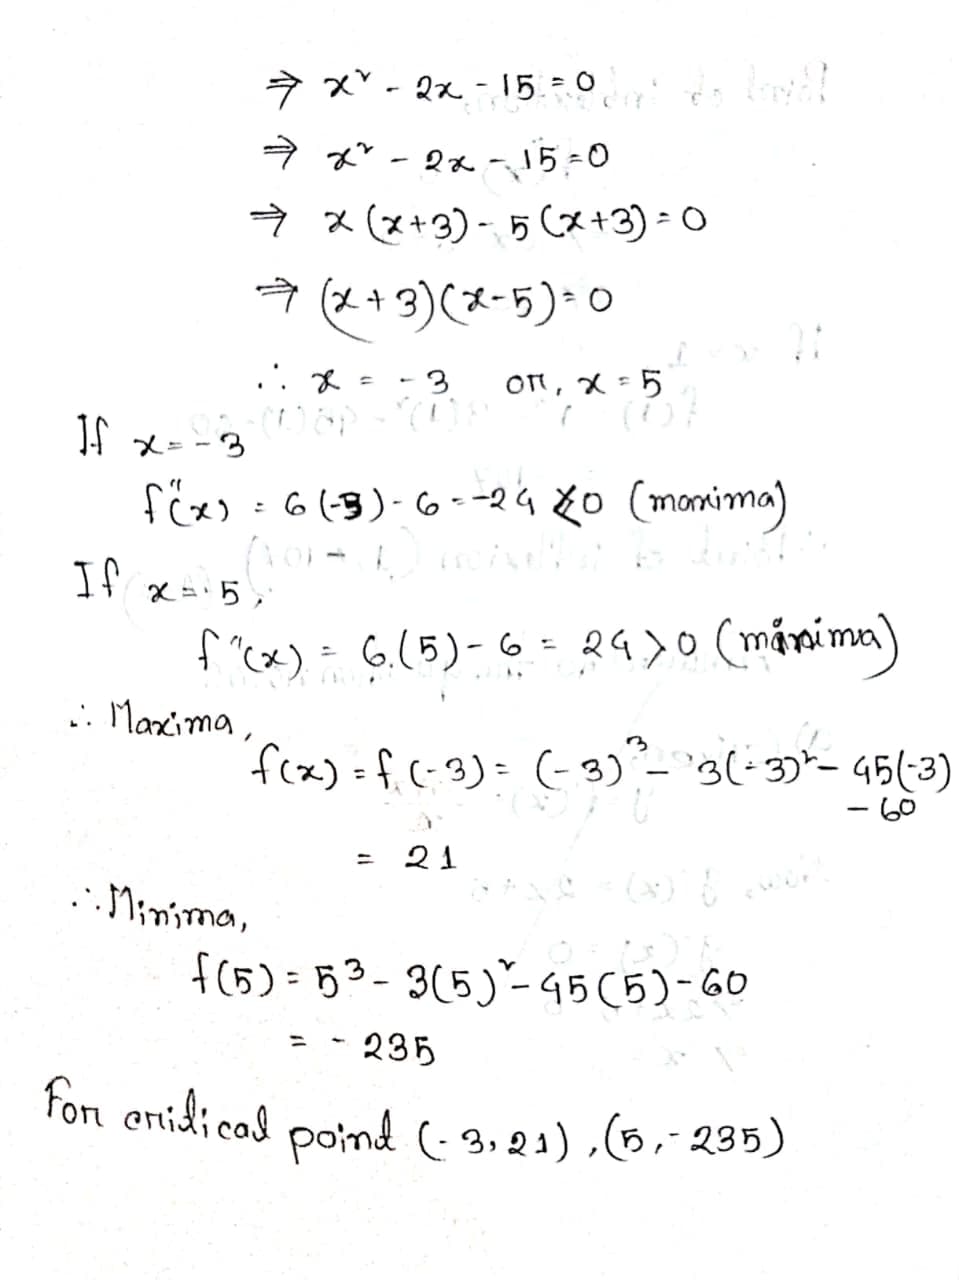 ⇒ x² - 2x - 15 = 0
⇒ x² - 2x - 15 = 0
⇒ x (x+3) - 5 (x+3) = 0
⇒ (x+3)(x-5) = 0
∴ x = -3 or, x = 5
If x = -3
f"(x) = 6(-3) - 6 = -24 < 0 (maxima)
If x = 5,
f"(x) = 6.(5) - 6 = 24 > 0 (minima)
∴ Maxima,
f(x) = f(-3) = (-3)³ - 3(-3)² - 45(-3)
- 60
= 21
∴ Minima,
f(5) = 5³ - 3(5)² - 45(5) - 60
= - 235
For critical point (-3, 21), (5, -235)